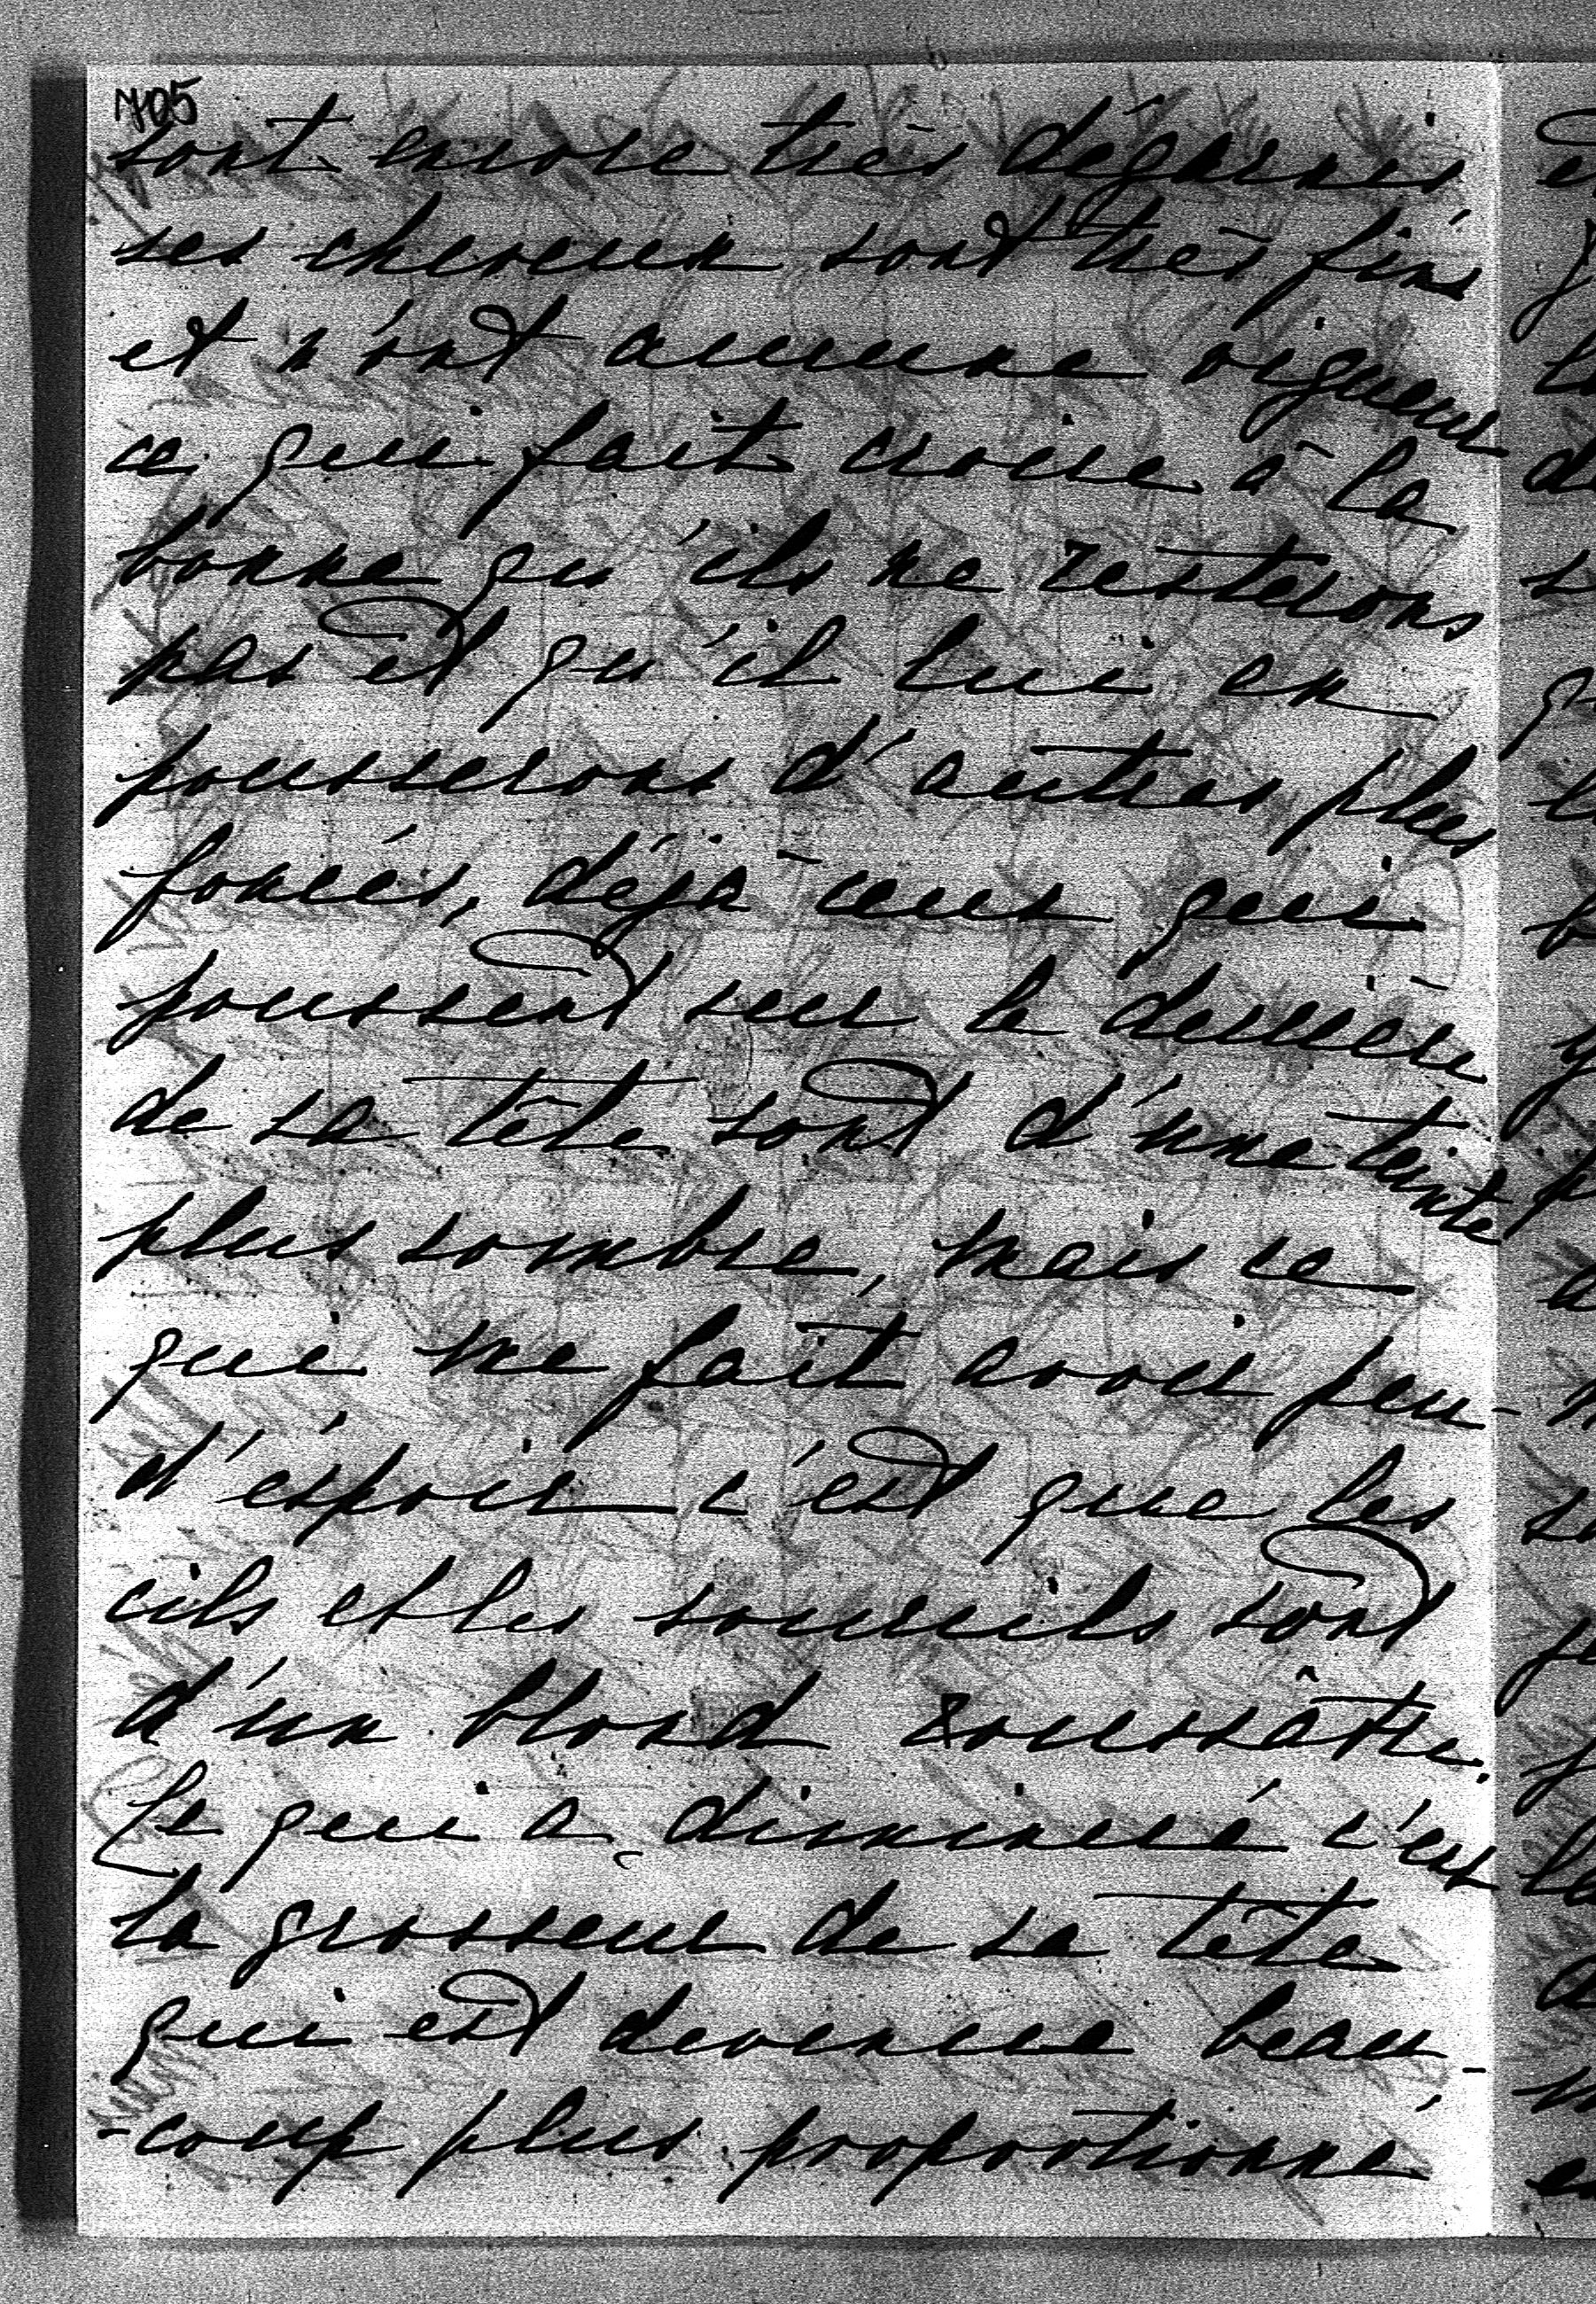 705
sont encore très dégarnis
ses cheveux sont très fins
et n'ont aucune vigueur
ce qui fait croire à la
bonne qu'ils ne resterons
pas et qu'il lui en
pousserons d'autres plus
foncés, déjà ceux qui
poussent sur le derrière
de sa tête sont d'une teinte
plus sombre, mais ce
qui me fait avoir peu
d'espoir c'est que les
cils et les sourcils sont
d'un blond roussâtre.
Ce qui a diminué c'est
la grosseur de sa tête
qui est devenue beau-
-coup plus proportionné